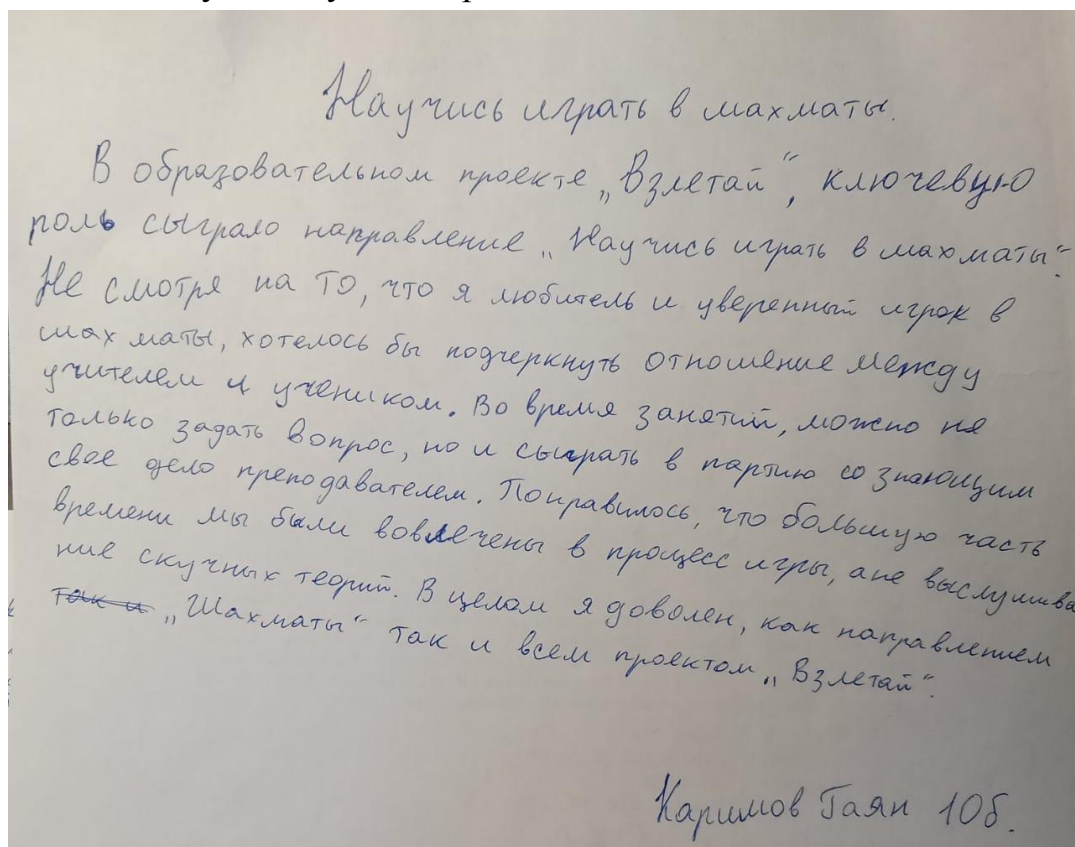 Научись играть в шахматы.
В образовательном проекте „Взлетай“, ключевую
роль сыграло направление „Научись играть в шахматы“.
Не смотря на то, что я любитель и уверенный игрок в
шахматы, хотелось бы подчеркнуть отношение между
учителем и учеником. Во время занятий, можно не
только задать вопрос, но и сыграть в партию со знающим
свое дело преподавателем. Понравилось, что большую часть
времени мы были вовлечены в процесс игры, а не выслушива
ние скучных теорий. В целом я доволен, как направлением
так и „Шахматы“ так и всем проектом „Взлетай“.
Каримов Гаян 10б.